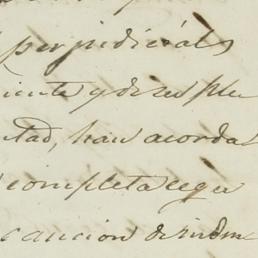 perjudicial
iente y de resple
ntad, han acordad
completa cegue
caucion de indem